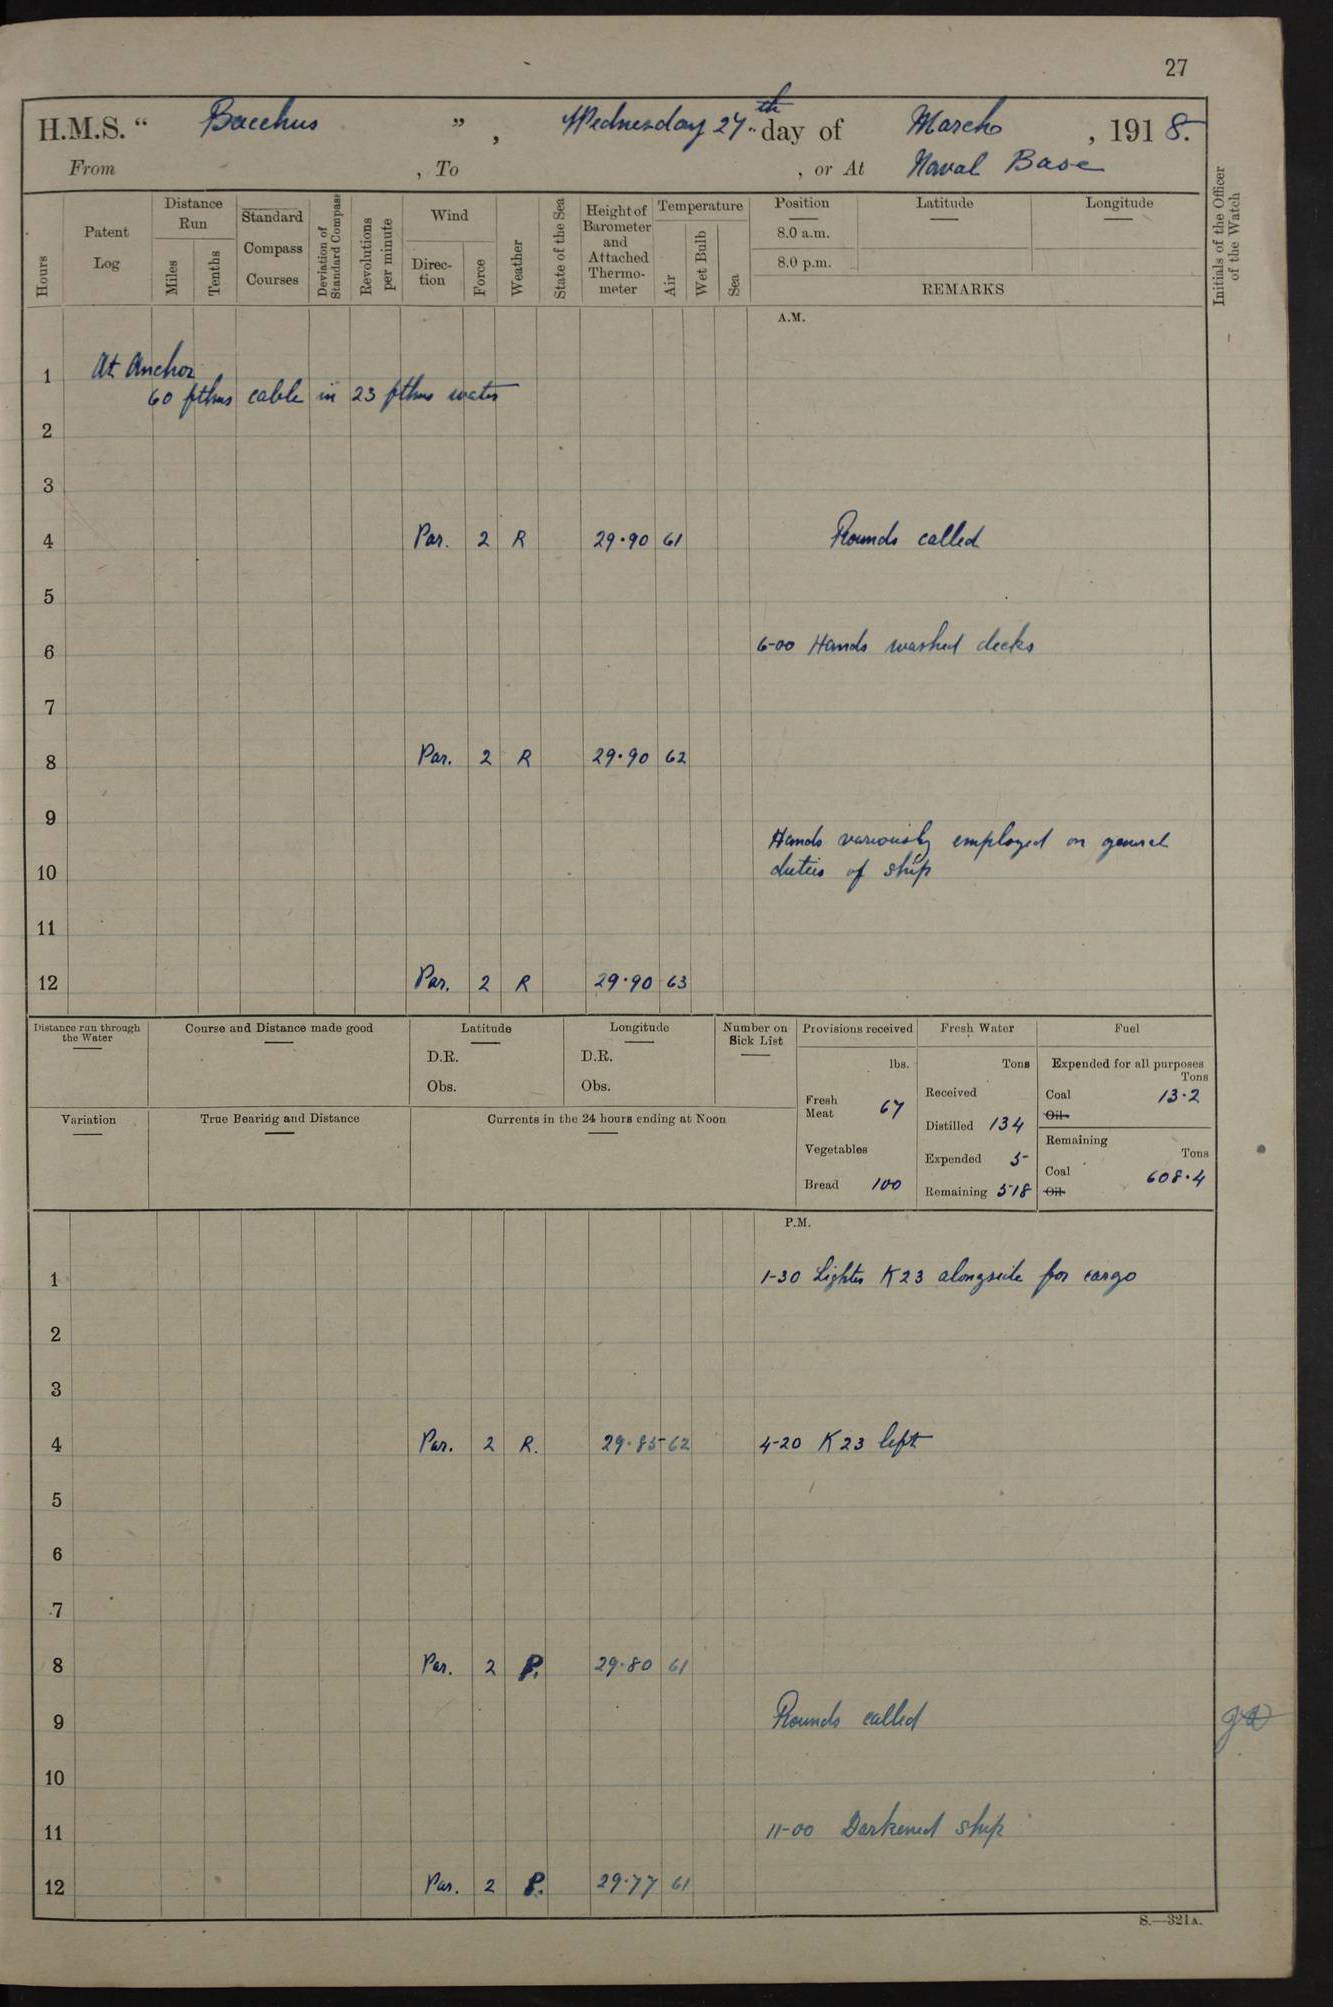 27
H.M.S. “ Bacchus ”, Wednesday 27th day of March, 1918.
From , To , or At Naval Base
Hours
Patent Log
Distance Run
Miles
Tenths
Standard Compass Courses
Deviation of Standard Compass
Revolutions per minute
Wind
Direction
Force
Weather
State of the Sea
Height of Barometer and Attached Thermometer
Temperature
Air
Wet Bulb
Sea
Position
8.0 a.m.
8.0 p.m.
Latitude
Longitude
REMARKS
Initials of the Officer of the Watch
A.M.
1 At Anchor
60 fthms cable in 23 fthms water
2
3
4 Par. 2 R 29.90 61 Rounds called
5
6 6-00 Hands washed decks
7
8 Par. 2 R 29.90 62
9
Hands variously employed on general
10 duties of ship
11
12 Par. 2 R 29.90 63
Distance run through the Water
Course and Distance made good
Latitude
D.R.
Obs.
Longitude
D.R.
Obs.
Number on Sick List
Provisions received
lbs.
Fresh Meat 67
Vegetables
Bread 100
Fresh Water
Tons
Received
Distilled 134
Expended 5
Remaining 518
Fuel
Expended for all purposes
Tons
Coal 13.2
Oil
Remaining
Tons
Coal 608.4
Oil
Variation
True Bearing and Distance
Currents in the 24 hours ending at Noon
P.M.
1 1-30 Lighter K23 alongside for cargo
2
3
4 Par. 2 R. 29.85 62 4-20 K23 left
5
6
7
8 Par. 2 P. 29.80 61
9 Rounds called
10
11 11-00 Darkened ship
12 Par. 2 P. 29.77 61
S.—321A.